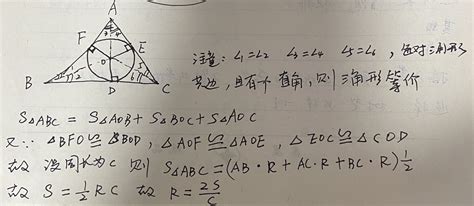 A
F
E
B
D
C
注意：∠1=∠2 ∠3=∠4 ∠5=∠6，每对三角形
共边，且有个直角，则三角形等价
S△ABC = S△AOB + S△BOC + S△AOC
又∵ △BFO≌△BOD，△AOF≌△AOE，△EOC≌△COD
故 设周长为C 则 S△ABC=(AB·R+AC·R+BC·R)½
故 S=½RC 故 R=2S/C